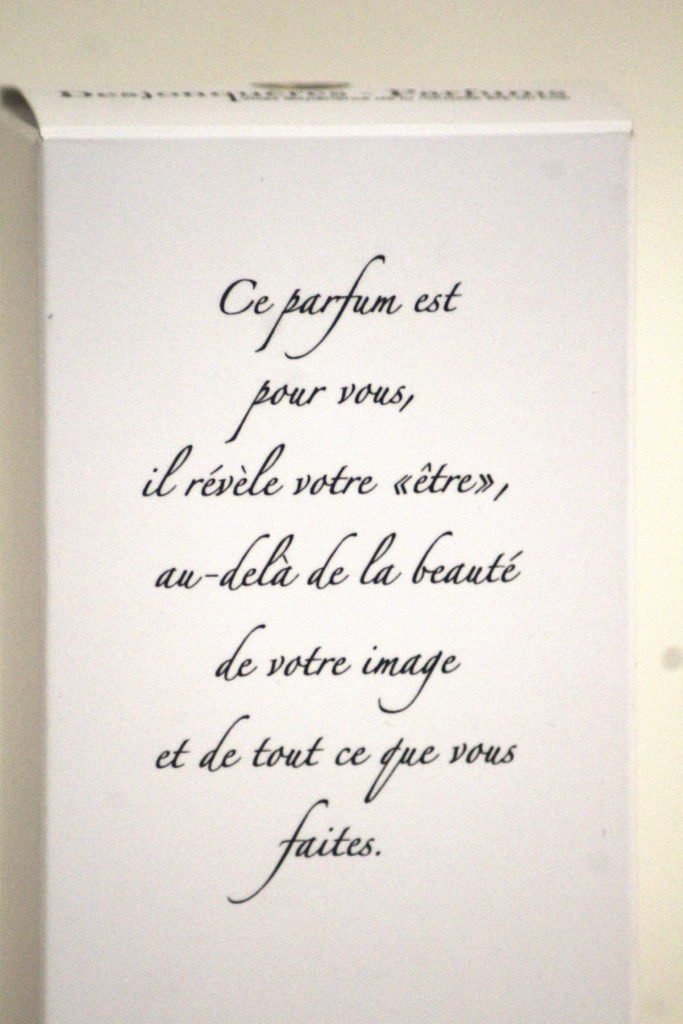 Desjonquères - Parfums
Ce parfum est
pour vous,
il révèle votre «être»,
au-delà de la beauté
de votre image
et de tout ce que vous
faites.